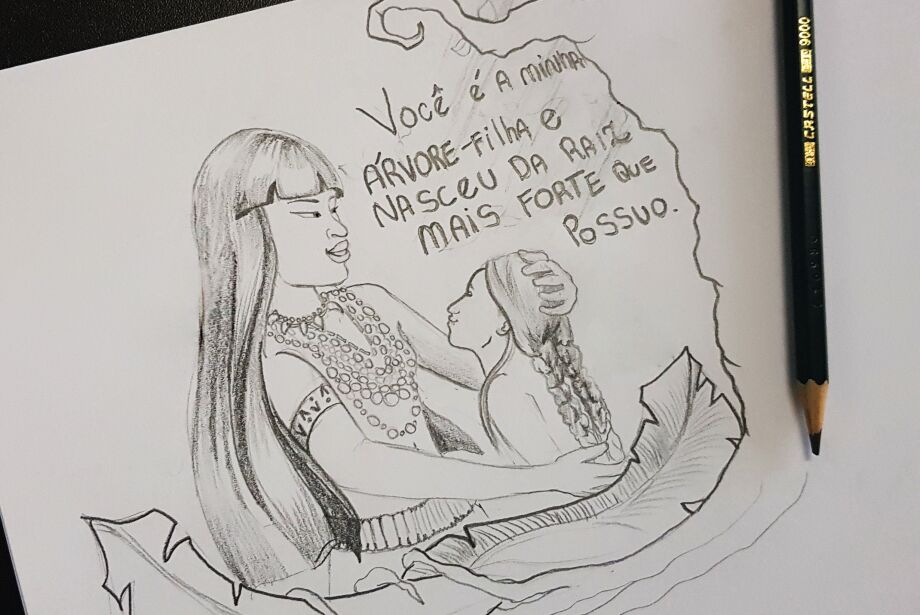 Você é a minha
ÁRVORE-filha e
NASCEU DA RAIZ
MAIS FORTE QUE
POSSUO.
CASTELL 9000